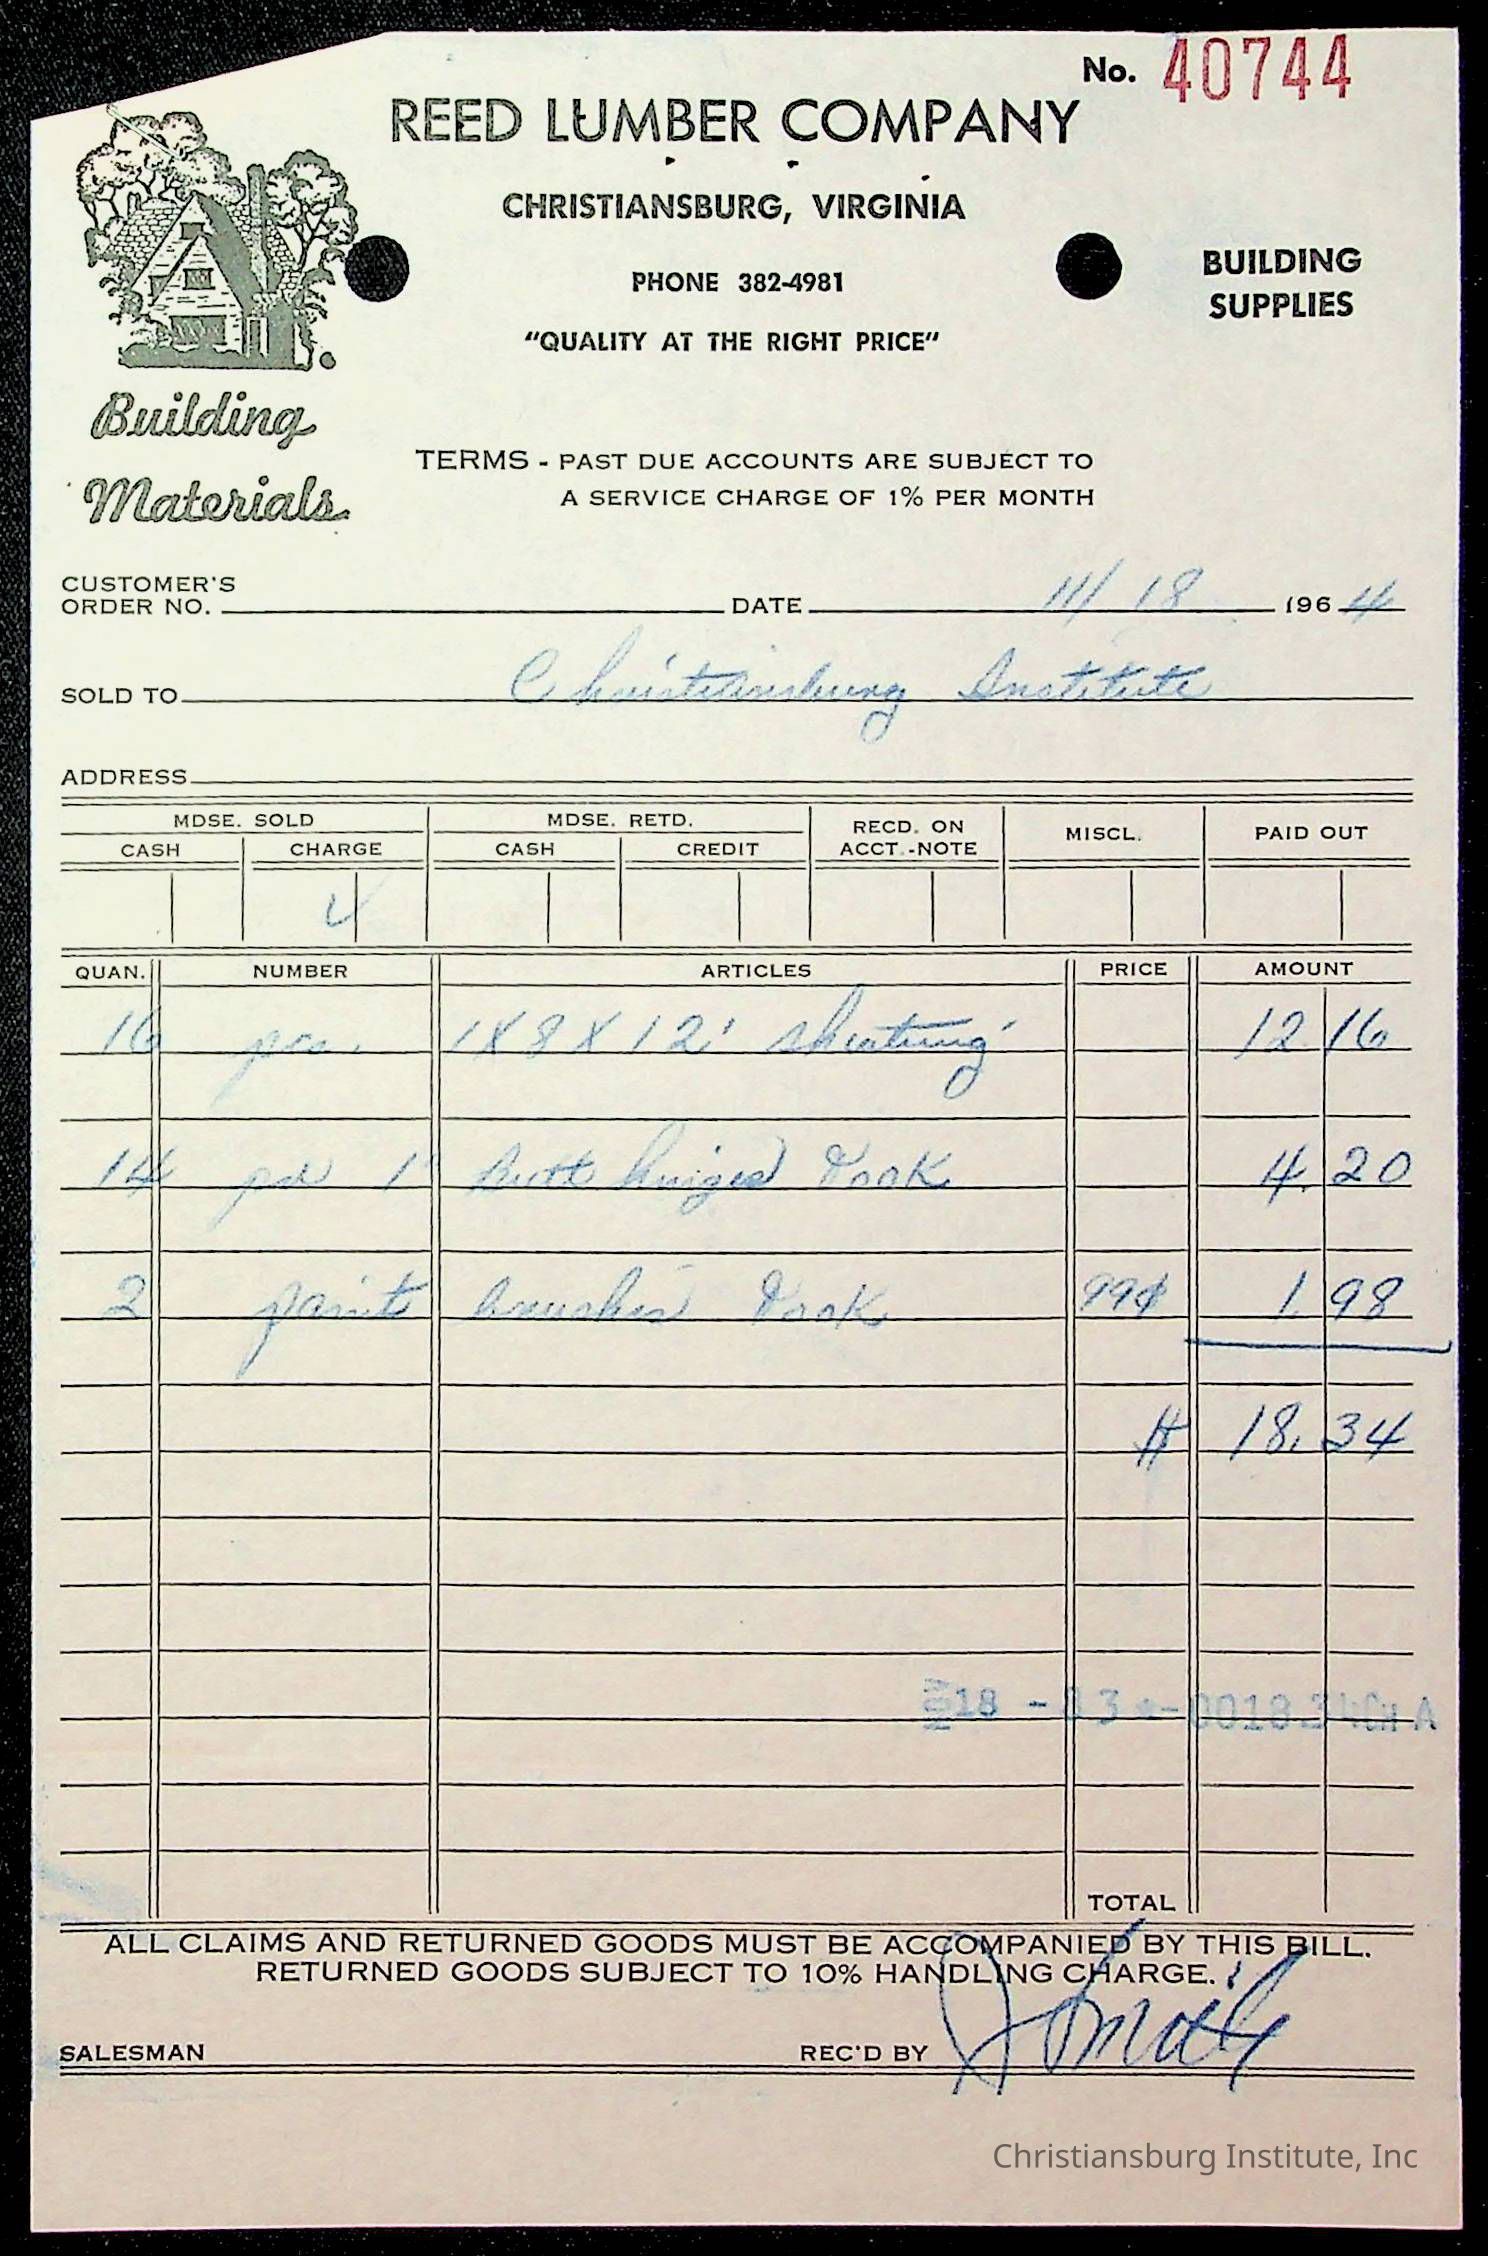 No. 40744
REED LUMBER COMPANY
CHRISTIANSBURG, VIRGINIA
PHONE 382-4981
"QUALITY AT THE RIGHT PRICE"
BUILDING
SUPPLIES
Building
Materials
TERMS - PAST DUE ACCOUNTS ARE SUBJECT TO
A SERVICE CHARGE OF 1% PER MONTH
CUSTOMER'S
ORDER NO. DATE 11/18 1964
SOLD TO Christiansburg Institute
ADDRESS
MDSE. SOLD MDSE. RETD. RECD. ON ACCT.-NOTE MISCL. PAID OUT
CASH CHARGE CASH CREDIT
QUAN. NUMBER ARTICLES PRICE AMOUNT
16 pcs. 1X8X12' sheating 12.16
14 1" Butt hinges 4.20
2 paint brushes 99¢ 1.98
18.34
18
TOTAL
ALL CLAIMS AND RETURNED GOODS MUST BE ACCOMPANIED BY THIS BILL.
RETURNED GOODS SUBJECT TO 10% HANDLING CHARGE.
SALESMAN REC'D BY
Christiansburg Institute, Inc